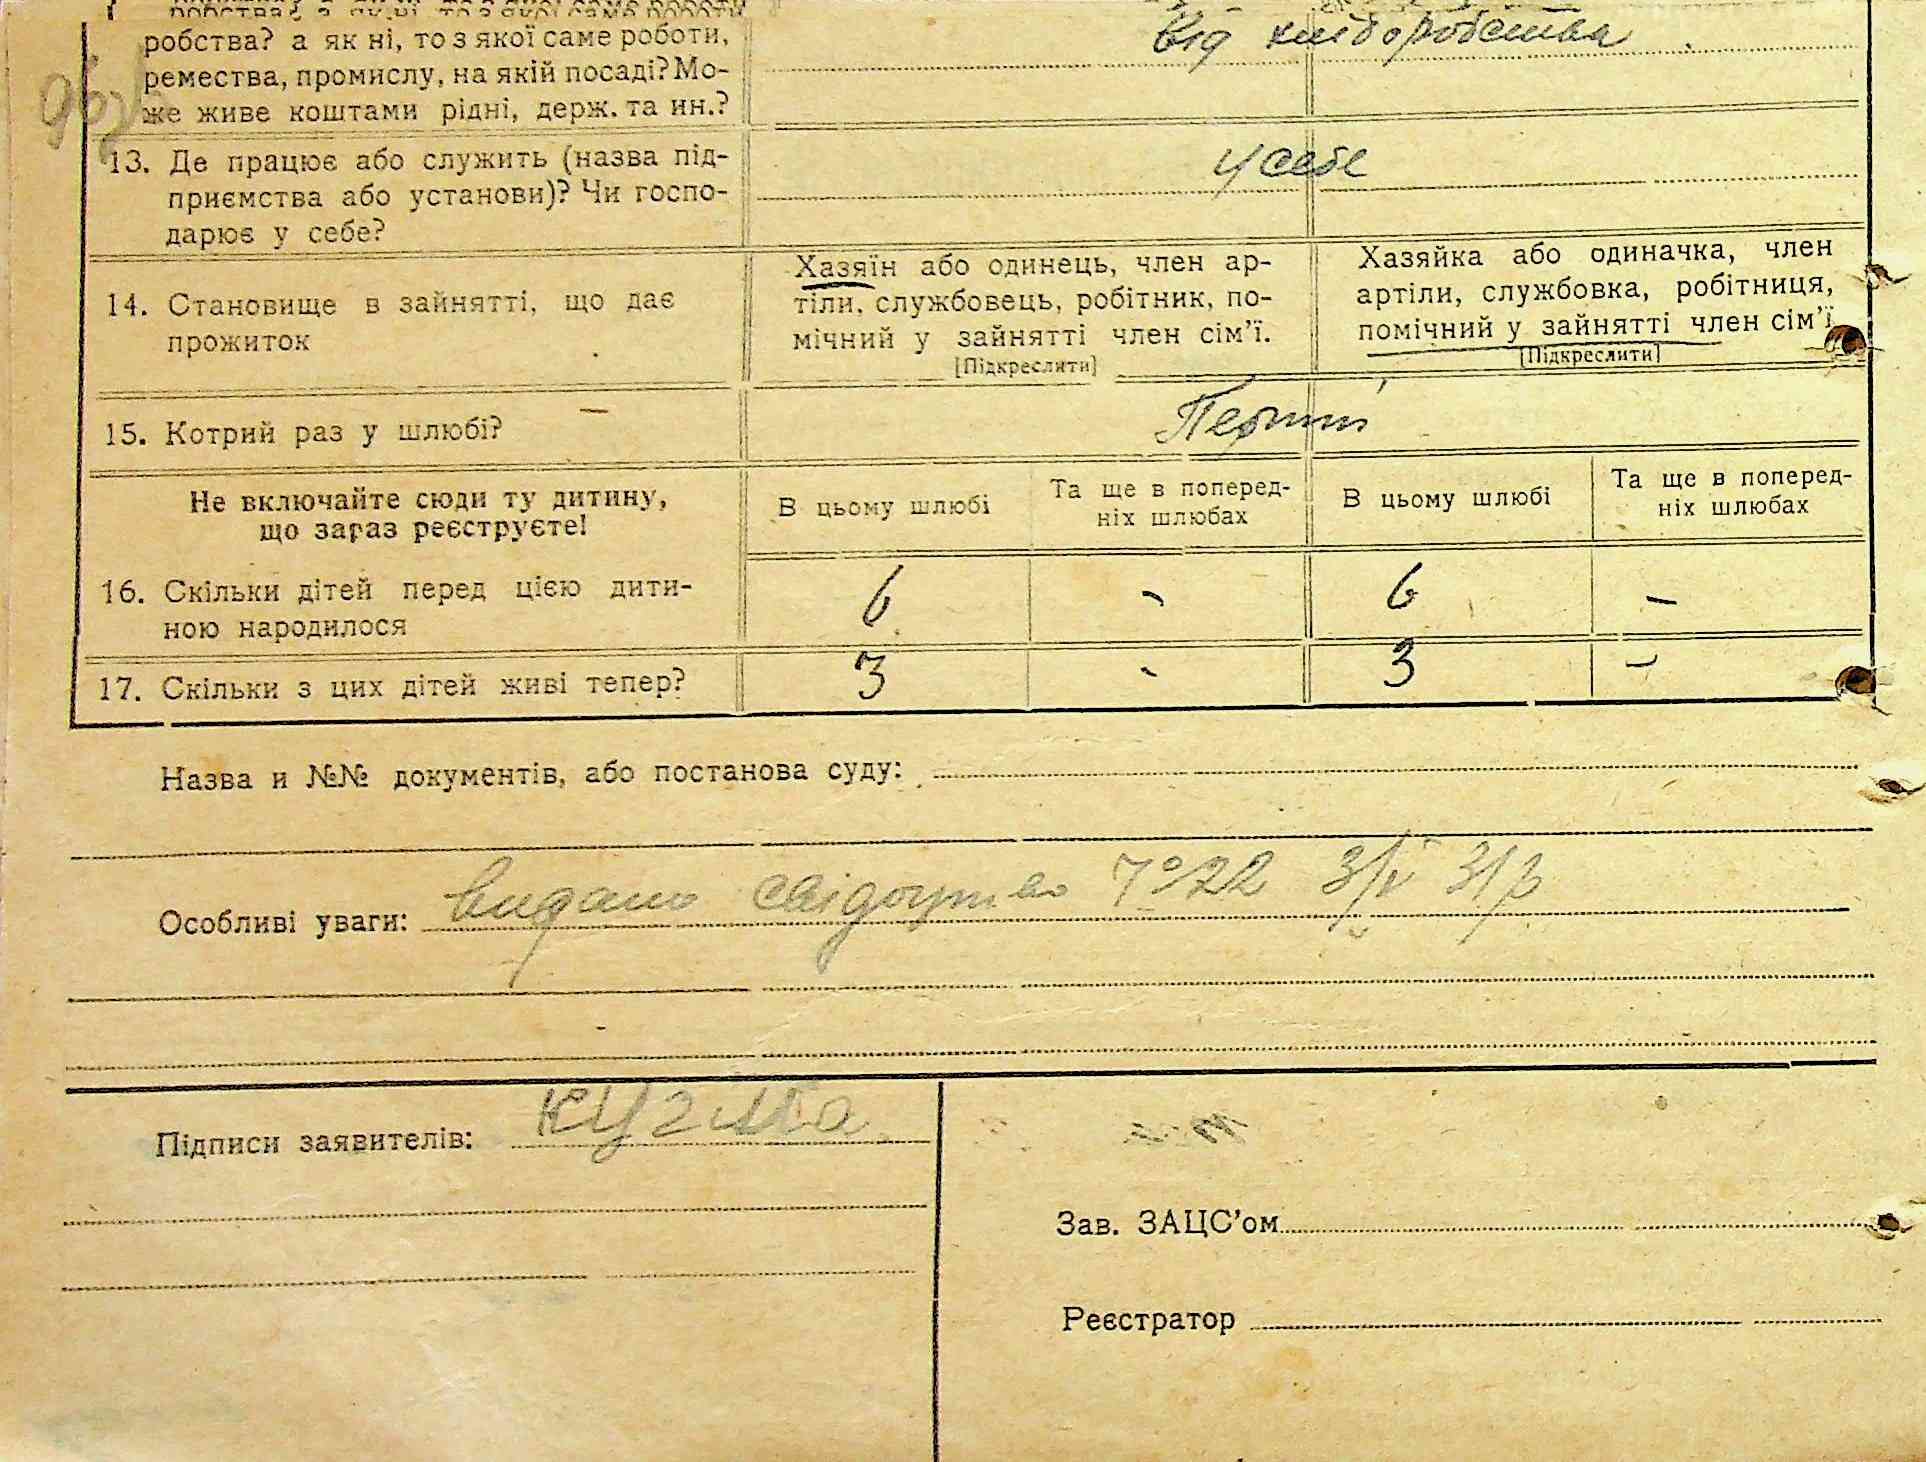 робства? а як ні, то з якої саме роботи,
ремества, промислу, на якій посаді? Мо-
же живе коштами рідні, держ. та ин.?
Від хліборобства
13. Де працює або служить (назва під-
приємства або установи)? Чи госпо-
дарює у себе?
у себе
14. Становище в зайнятті, що дає
прожиток
Хазяїн або одинець, член ар-
тіли, службовець, робітник, по-
мічний у зайнятті член сім'ї.
[Підкреслити]
Хазяйка або одиначка, член
артіли, службовка, робітниця,
помічний у зайнятті член сім'ї
[Підкреслити]
15. Котрий раз у шлюбі?
Перший
Не включайте сюди ту дитину,
що зараз реєструєте!
В цьому шлюбі
Та ще в поперед-
ніх шлюбах
В цьому шлюбі
Та ще в поперед-
ніх шлюбах
16. Скільки дітей перед цією дити-
ною народилося
6 - 6 -
17. Скільки з цих дітей живі тепер?
3 - 3 -
Назва и №№ документів, або постанова суду:
Особливі уваги: видано свідоцтво №22 3/V 31 р
Підписи заявителів: Кузма
Зав. ЗАЦС'ом
Реєстратор